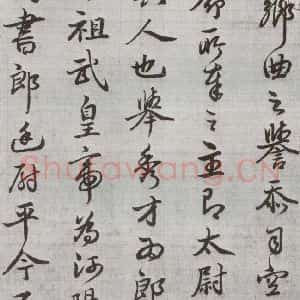 鄉曲之譽忝司空
命所奉之主即太尉
人也舉秀才為郎
祖武皇帝為河陽
書郎廷尉平今
Shufawang.CN